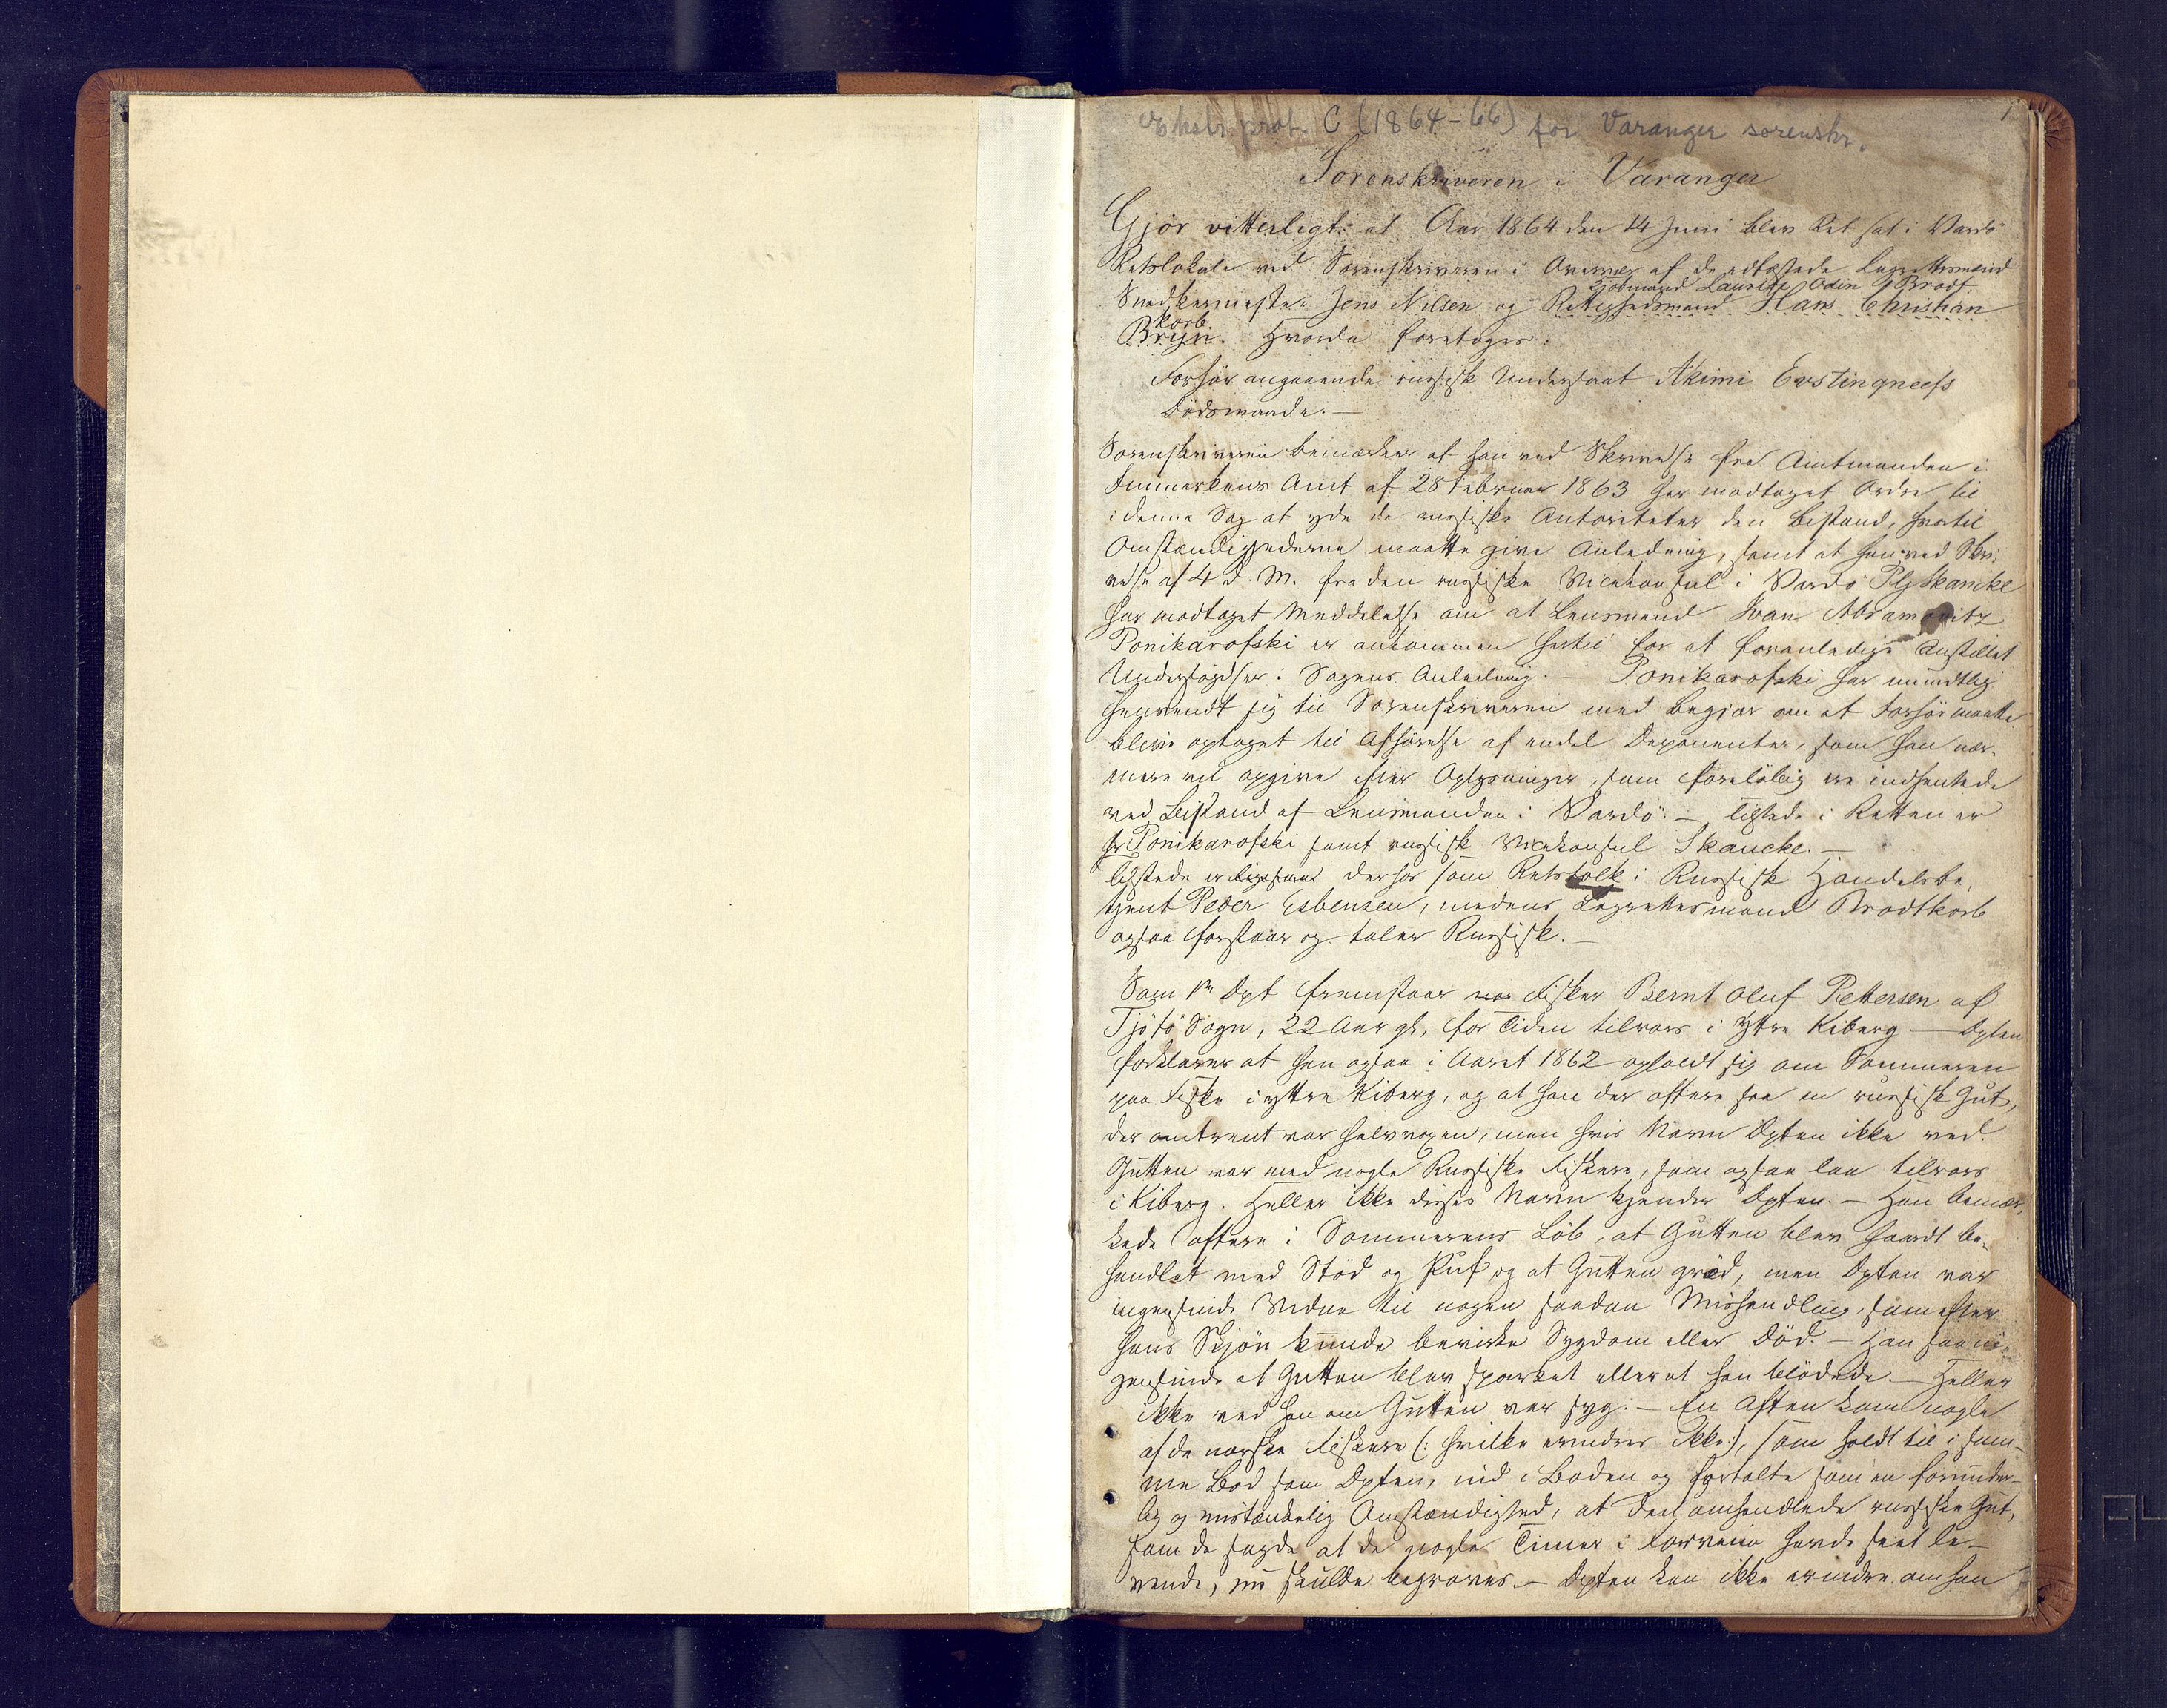 1
Ekstr. prot. C (1864-66) for Varanger sorenskr.
Sorenskriveren i Varanger
Gjör vitterligt: at Aar 1864 den 14 Juni blev Ret sat i Vardö
Retslokale ved Sorenskriveren i Overvær af de edfæstede Lagrettesmænd
Kjöbmand Lauritz Odin Brodt
Snedkermester Jens Nilsen og Rettighedsmand Hans Christian
korb.
Bryn. Hvorda foretoges:
Forhör angaaende russisk Undersaat Akimi Evstingneefs
Dödsmaade. —
Sorenskriveren bemærker at han ved Skrivelse fra Amtmanden i
Finmarkens Amt af 28 Februar 1863 har modtaget Ordre til
i denne Sag at yde de russiske Autoriteter den Bistand, hvortil
Omstændighederne maatte give Anledning, samt at han ved Skri-
velse af 4 d. M. fra den russiske Vicekonsul i Vardö Skancke
har modtaget Meddelelse om at Lensmand Ivan Abramovitz
Ponikarofski er ankommen hertil for at foranledige Anstillet
Undersögelser i Sagens Anledning. — Ponikarofski har mundtlig
henvendt sig til Sorenskriveren med Begjær om at Forhör maatte
blive optaget til Afhörelse af endel Deponenter, som han nær-
mere vil opgive efter Oplysninger, som foreløbig ere indhentede
ved Bistand af Lensmanden i Vardö. — Tilstede i Retten er
Hr Ponikarofski samt russisk Vicekonsul Skancke. —
Tilstede er ligesaa derhos som Retstolk i Russisk Handelsbe-
tjent Peder Esbensen, medens Lagrettesmand Brodtkorb
ogsaa forstaar og taler Russisk. —
Som 1ste Dpt fremstaar Fisker Bernt Oluf Pettersen af
Tjötö Sogn, 22 Aar gl, for Tiden tilrors i Ytre Kiberg — Dpten
forklarer at han ogsaa i Aaret 1862 opholdt sig om Sommeren
paa Fiske i ytre Kiberg, og at han der oftere saa en russisk Gut,
der omtrent var halvvoxen, men hvis Navn Dpten ikke ved.
Gutten var med nogle Russiske Fiskere, som ogsaa laa tilrors
i Kiberg. Heller ikke disses Navn kjender Dpten. — Han bemær-
kede oftere i Sommerens Löb, at Gutten blev haardt be-
handlet med Stöd og Puf og at Gutten græd, men Dpten var
ingensinde Vidne til nogen saadan Mishandling, som efter
hans Skjön kunde bevirke Sygdom eller Död. — Han saa in-
gensinde at Gutten blev sparket eller at han blödede. — Heller
ikke ved han om Gutten var syg. — En Aften kom nogle
af de norske Fiskere (: hvilke erindres ikke:), som holdt til i sam-
me Bod som Dpten, ind i Boden og fortalte som en forunder-
lig og mistænkelig Omstændighed, at den omhandlede russiske Gut,
som de sagde at de nogle Timer i Forveien havde seet le-
vende, nu skulde begraves. — Dpten kan ikke erindre om han